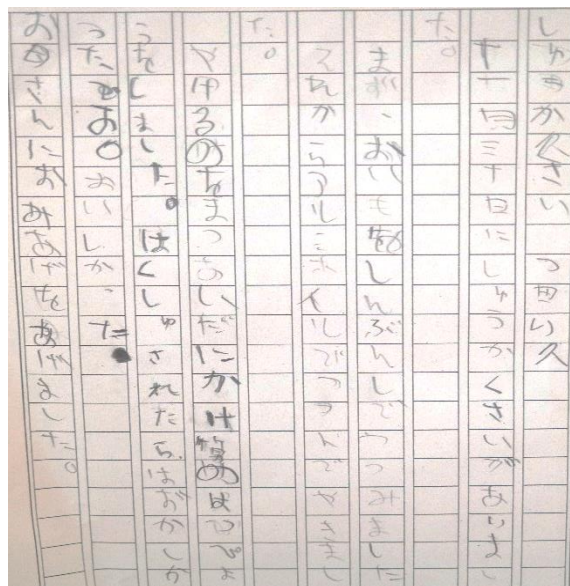 しゅうかく さい つ田り久
十一月三十日にしゅうかくさいがあいまし
た。
まず、おいもをしんぶんしでつつみました
それからアルミホイルでつつんでやきまし
た。
やけるのをまつあいだにかけ算のはっぴょ
うをしました。はくしゅされたらはずかしか
ったでお。おいしかった。
お母さんにおみあげをあげました。